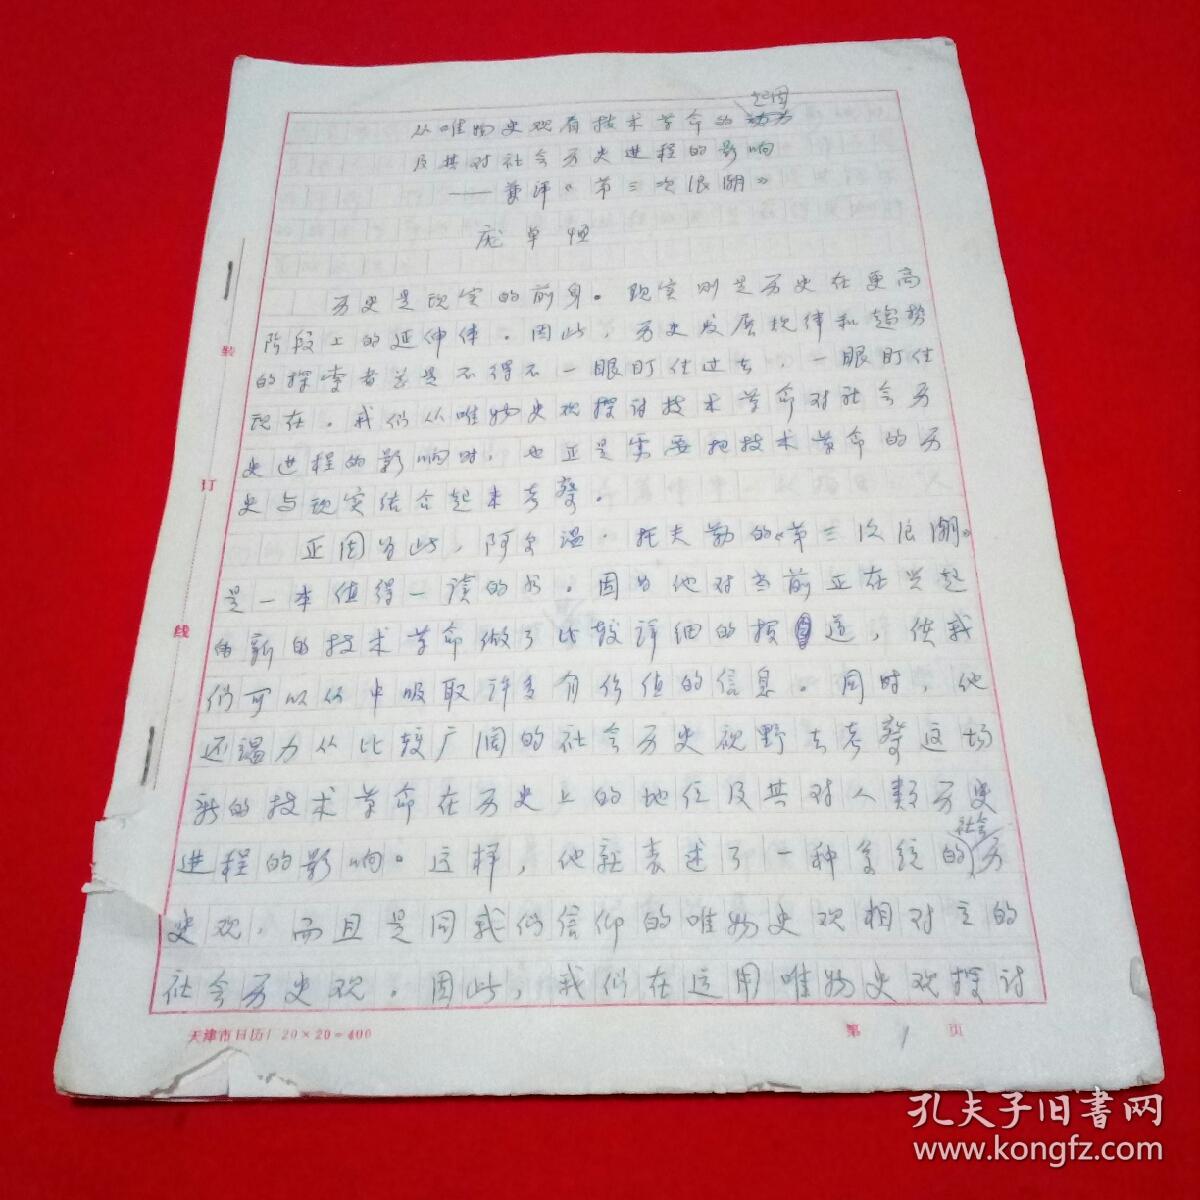 起因
从唯物史观看技术革命的动力
及其对社会历史进程的影响
——兼评《第三次浪潮》
庞卓恒
历史是现实的前身。现实则是历史在更高
阶段上的延伸体。因此，历史发展规律和趋势
的探索者总是不得不一眼盯住过去，一眼盯住
现在。我们从唯物史观探讨技术革命对社会历
史进程的影响时，也正是需要把技术革命的历
史与现实结合起来考察。
正因为此，阿尔温·托夫勒的《第三次浪潮》
是一本值得一读的书。因为他对当前正在兴起
的新的技术革命做了比较详细的报道，使我
们可以从中吸取许多有价值的信息。同时，他
还竭力从比较广阔的社会历史视野去考察这场
新的技术革命在历史上的地位及其对人类历史
社会
进程的影响。这样，他就表述了一种系统的历
史观，而且是同我们信仰的唯物史观相对立的
社会历史观。因此，我们在运用唯物史观探讨
装
订
线
天津市日历厂 20×20=400
第 1 页
孔夫子旧書网
www.kongfz.com